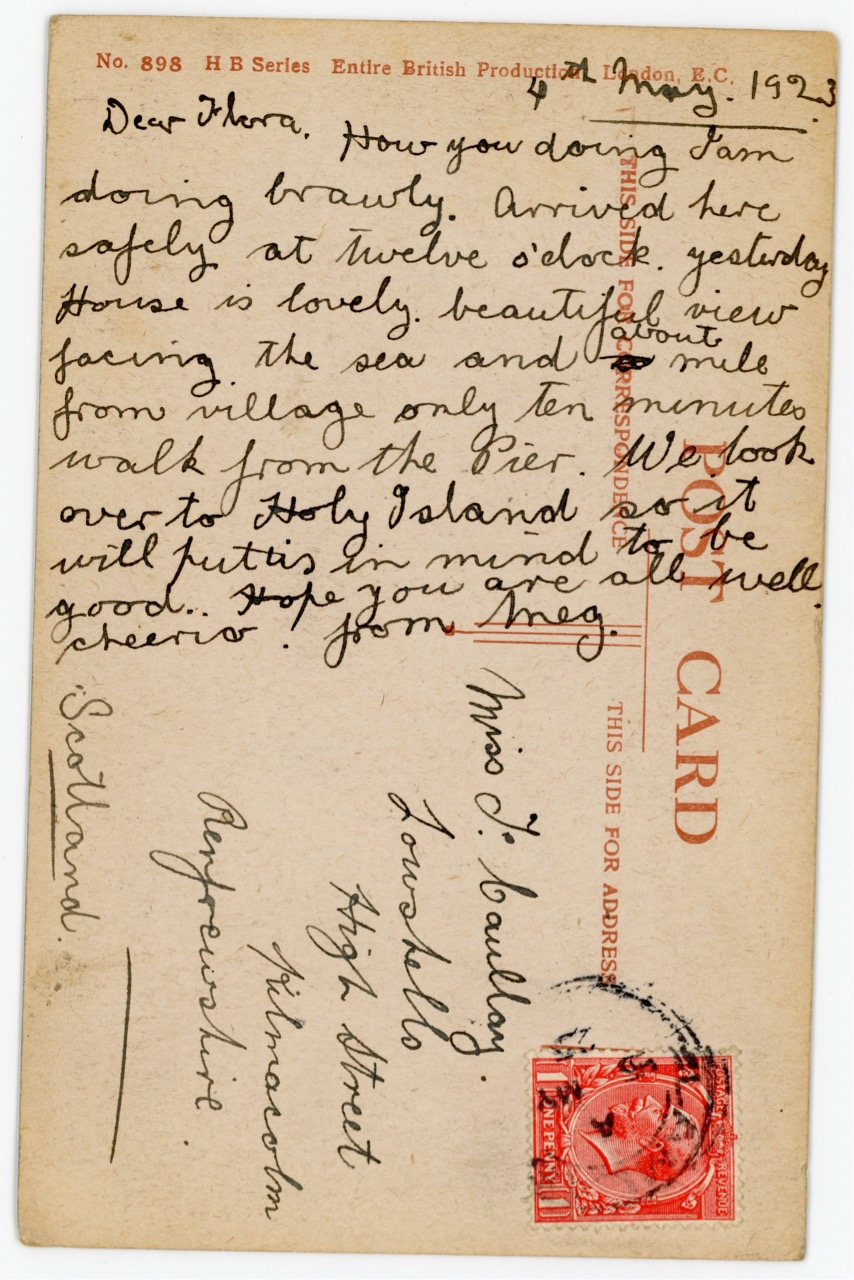 No. 898 H B Series Entire British Production London, E.C.
4th May. 1923
Dear Flora. How you doing I am
doing brawly. Arrived here
safely at twelve o'clock. yesterday
House is lovely. beautiful view
facing the sea and about mile
from village only ten minutes
walk from the Pier. We look
over to Holy Island so it
will put us in mind to be
good.. Hope you are all well.
cheerio! from Meg.
THIS SIDE FOR CORRESPONDENCE
POST CARD
THIS SIDE FOR ADDRESS
Miss F.
High Street
Kilmacolm
Renfrewshire.
Scotland.
POSTAGE REVENUE
ONE PENNY
1 1